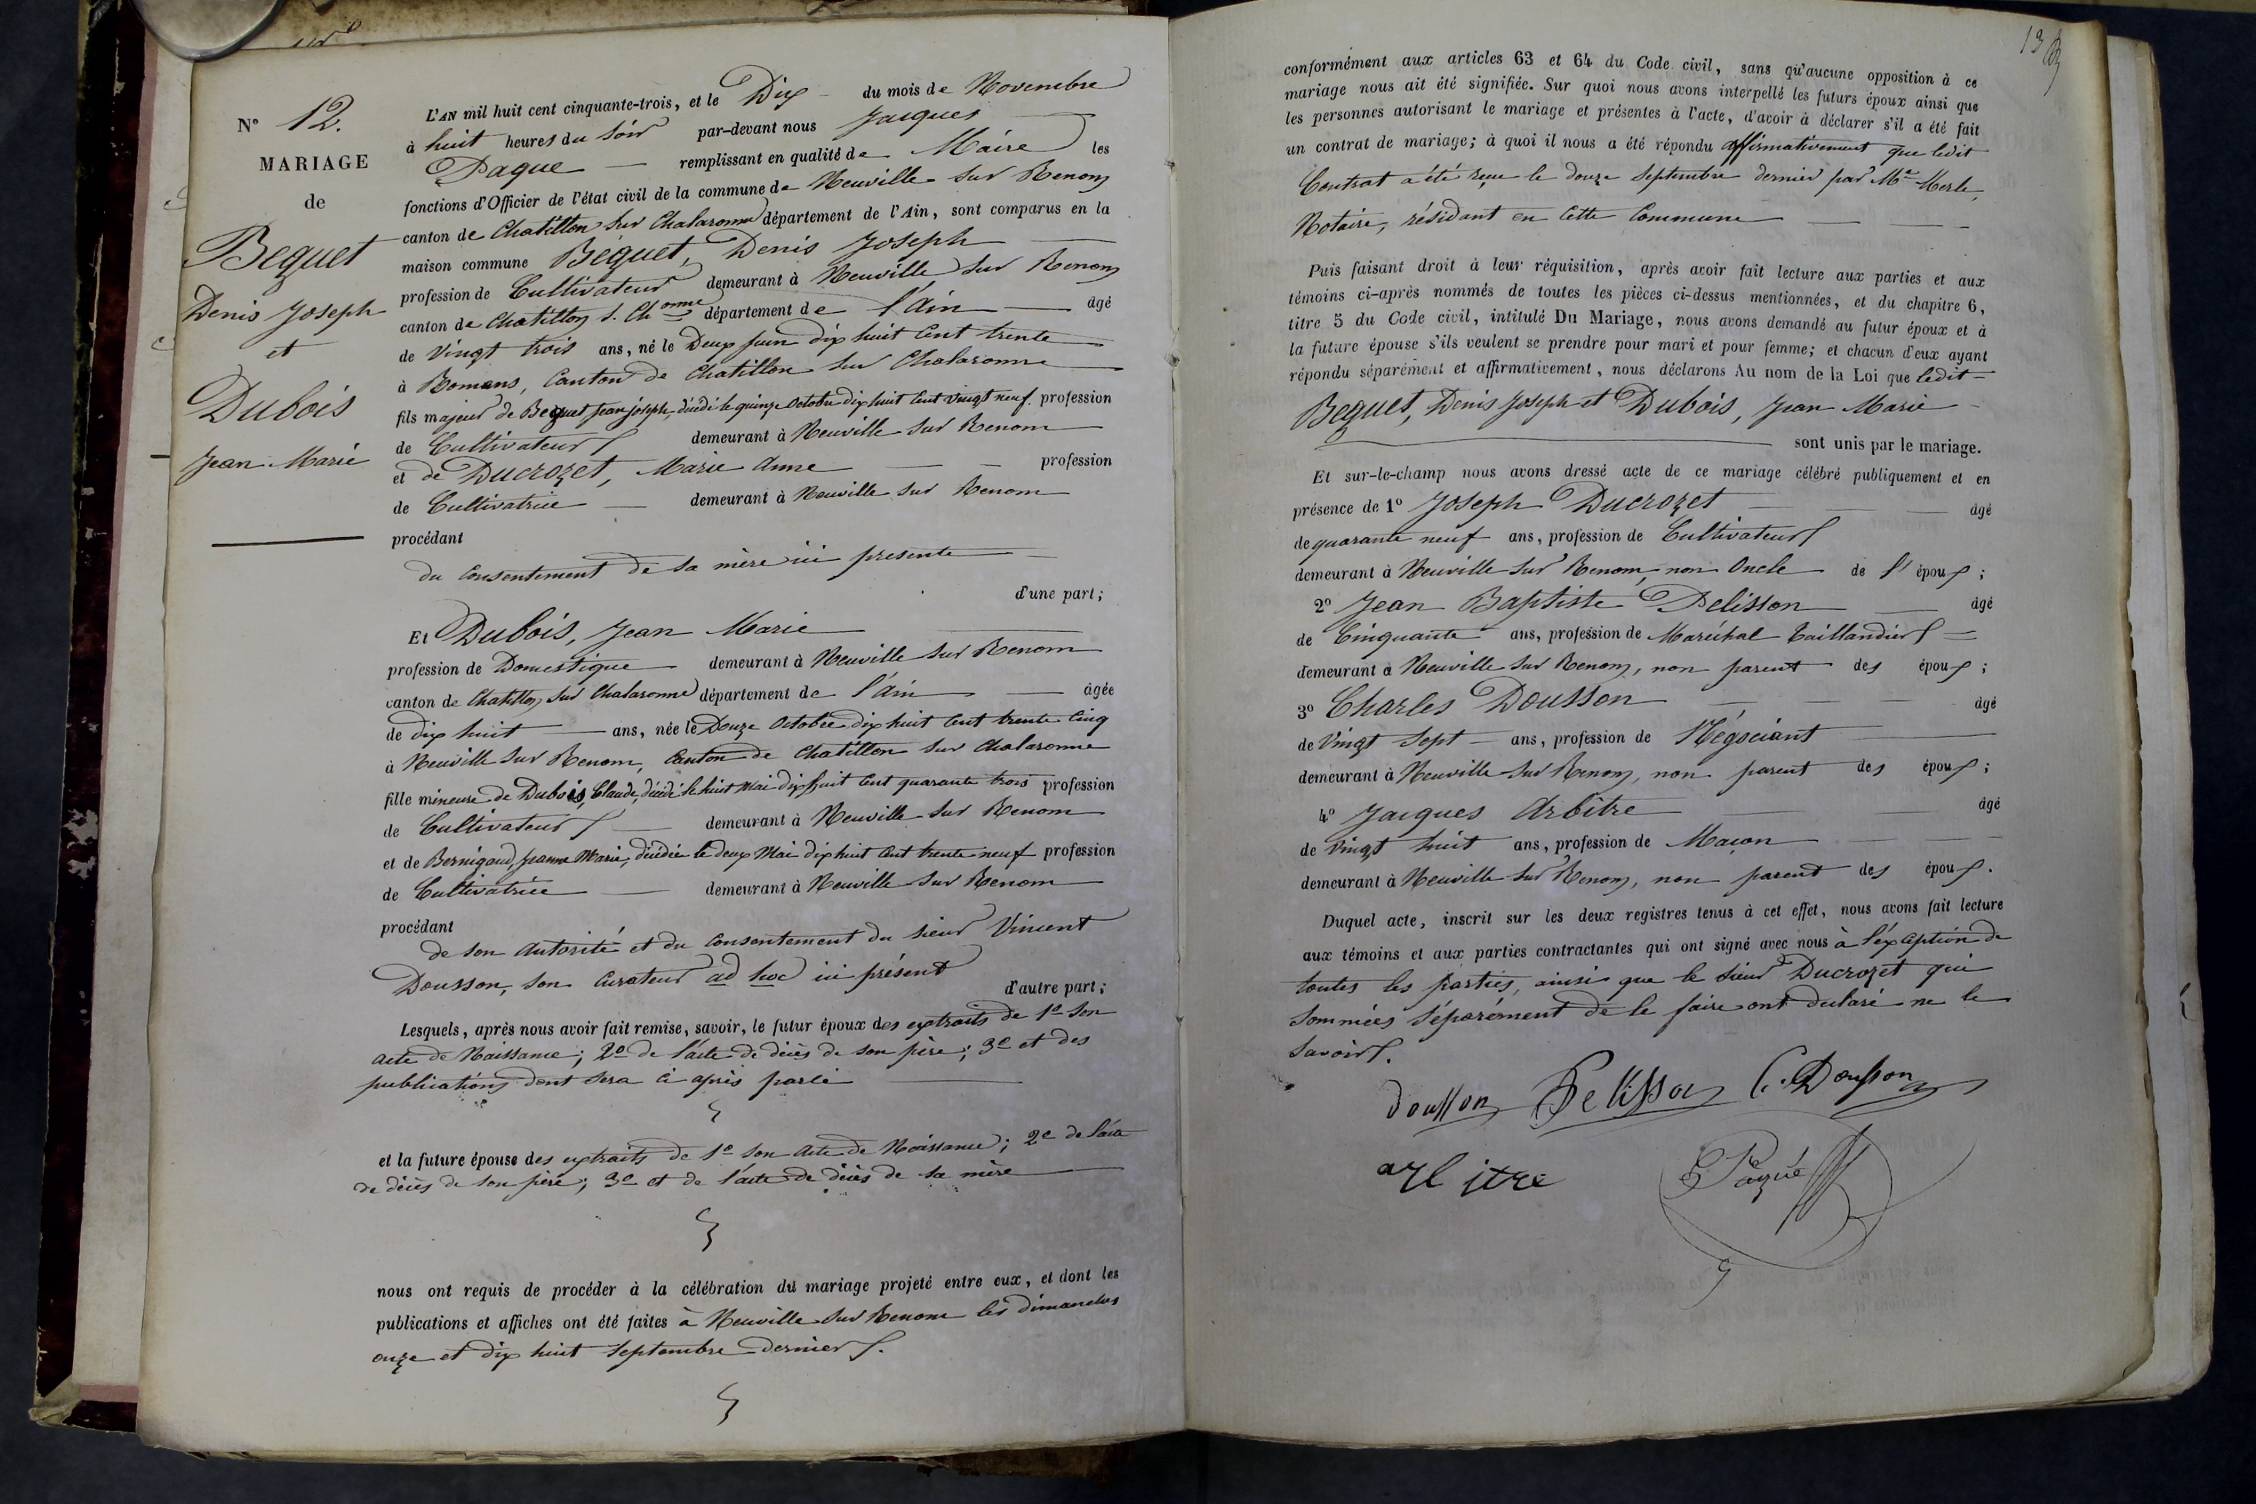 N° 12.
MARIAGE
de
Bequet
Denis Joseph
et
Dubois
Jean Marie
L'AN mil huit cent cinquante-trois, et le Dix du mois de Novembre
à huit heures du soir par-devant nous Jacques
Paque remplissant en qualité de Maire les
fonctions d'Officier de l'état civil de la commune de Neuville sur Renom
canton de Chatillon sur Chalaronne département de l'Ain, sont comparus en la
maison commune Bequet, Denis Joseph
profession de Cultivateur demeurant à Neuville sur Renom
canton de Chatillon s. Chonne département de l'Ain âgé
de Vingt trois ans, né le Deux juin dix huit cent trente
à Romans, Canton de Chatillon sur Chalaronne
fils majeur de Bequet Jean joseph, décédé le quinze Octobre dix huit cent vingt neuf profession
de Cultivateur demeurant à Neuville sur Renom
et de Ducrozet, Marie Anne profession
de Cultivatrice demeurant à Neuville sur Renom
procédant
du consentement de sa mère ici presente
d'une part;
Et Dubois, Jean Marie
profession de Domestique demeurant à Neuville sur Renom
canton de Chatillon sur Chalaronne département de l'ain âgée
de dix huit ans, née le Douze Octobre dix huit cent trente cinq
à Neuville sur Renom, Canton de Chatillon sur Chalaronne
fille mineure de Dubois, Claude, décédé le huit Mai dix huit cent quarante trois profession
de Cultivateur demeurant à Neuville sur Renom
et de Bernigaud, Jeanne Marie, décédée le deux Mai dix huit cent trente neuf profession
de Cultivatrice demeurant à Neuville sur Renom
procédant
de son autorité et du consentement du sieur Vincent
Dousson, son Curateur ad hoc ici présent
d'autre part;
Lesquels, après nous avoir fait remise, savoir, le futur époux des extraits de 1° son
acte de Naissance; 2° de l'acte de décès de son père; 3° et des
publications dont sera ci après parlé
et la future épouse des extraits de 1° son acte de Naissance; 2° de l'acte
de décès de son père; 3° et de l'acte de décès de sa mère
nous ont requis de procéder à la célébration du mariage projeté entre eux, et dont les
publications et affiches ont été faites à Neuville sur Renom les dimanches
onze et dix huit septembre dernier.
13
conformément aux articles 63 et 64 du Code civil, sans qu'aucune opposition à ce
mariage nous ait été signifiée. Sur quoi nous avons interpellé les futurs époux ainsi que
les personnes autorisant le mariage et présentes à l'acte, d'avoir à déclarer s'il a été fait
un contrat de mariage; à quoi il nous a été répondu affirmativement que ledit
Contrat a été reçu le douze Septembre dernier par Me Merle,
Notaire, résidant en cette Commune
Puis faisant droit à leur réquisition, après avoir fait lecture aux parties et aux
témoins ci-après nommés de toutes les pièces ci-dessus mentionnées, et du chapitre 6,
titre 5 du Code civil, intitulé Du Mariage, nous avons demandé au futur époux et à
la future épouse s'ils veulent se prendre pour mari et pour femme; et chacun d'eux ayant
répondu séparément et affirmativement, nous déclarons Au nom de la Loi que ledit
Bequet, Denis Joseph et Dubois, Jean Marie
sont unis par le mariage.
Et sur-le-champ nous avons dressé acte de ce mariage célébré publiquement et en
présence de 1° Joseph Ducrozet âgé
de quarante neuf ans, profession de Cultivateur
demeurant à Neuville sur Renom, non Oncle de l' époux;
2° Jean Baptiste Pelisson âgé
de Cinquante ans, profession de Maréchal taillandier
demeurant à Neuville sur Renom, non parent des époux;
3° Charles Dousson âgé
de Vingt sept ans, profession de Négociant
demeurant à Neuville sur Renom, non parent des époux;
4° Jacques Arbitre âgé
de Vingt huit ans, profession de Maçon
demeurant à Neuville sur Renom, non parent des époux.
Duquel acte, inscrit sur les deux registres tenus à cet effet, nous avons fait lecture
aux témoins et aux parties contractantes qui ont signé avec nous à l'exception de
toutes les parties, ainsi que le sieur Ducrozet qui
sommées séparément de le faire ont declaré ne le
savoir.
dousson Pelisson C. Dousson
arbitre Paque